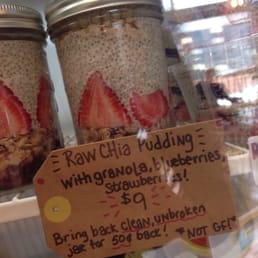 Raw CHia Pudding
with granola, blueberries,
strawberries!
$9
Bring back clean, unbroken
jar for 50¢ back! *NOT GF!*